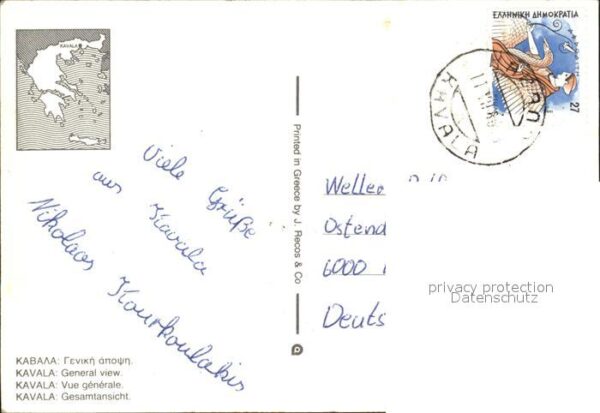 KAVALA
ΕΛΛΗΝΙΚΗ ΔΗΜΟΚΡΑΤΙΑ
27
KAVALA
Viele Grüße
aus Kavala
Nikolaos
Kourkoulakis
Printed in Greece by J. Recos & Co
Weller
Ostend
6000
Deuts
privacy protection
Datenschutz
ΚΑΒΑΛΑ: Γενική άποψη.
KAVALA: General view.
KAVALA: Vue générale.
KAVALA: Gesamtansicht.